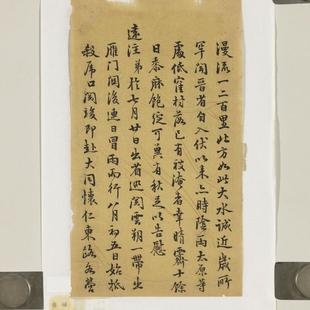 漫流一二百里北方如此大水誠近歲所
罕聞晉省自入伏以來亦時陰雨太原等
處低窪村落已有被淹者幸晴霽十餘
日黍麻飽綻可冀有秋足以告慰
遠注弟於七月廿日出省巡閱雲朔一帶出
雁門閱後連日冒雨而行八月初五日始抵
殺虎口閱竣即赴大同懷仁東路各營